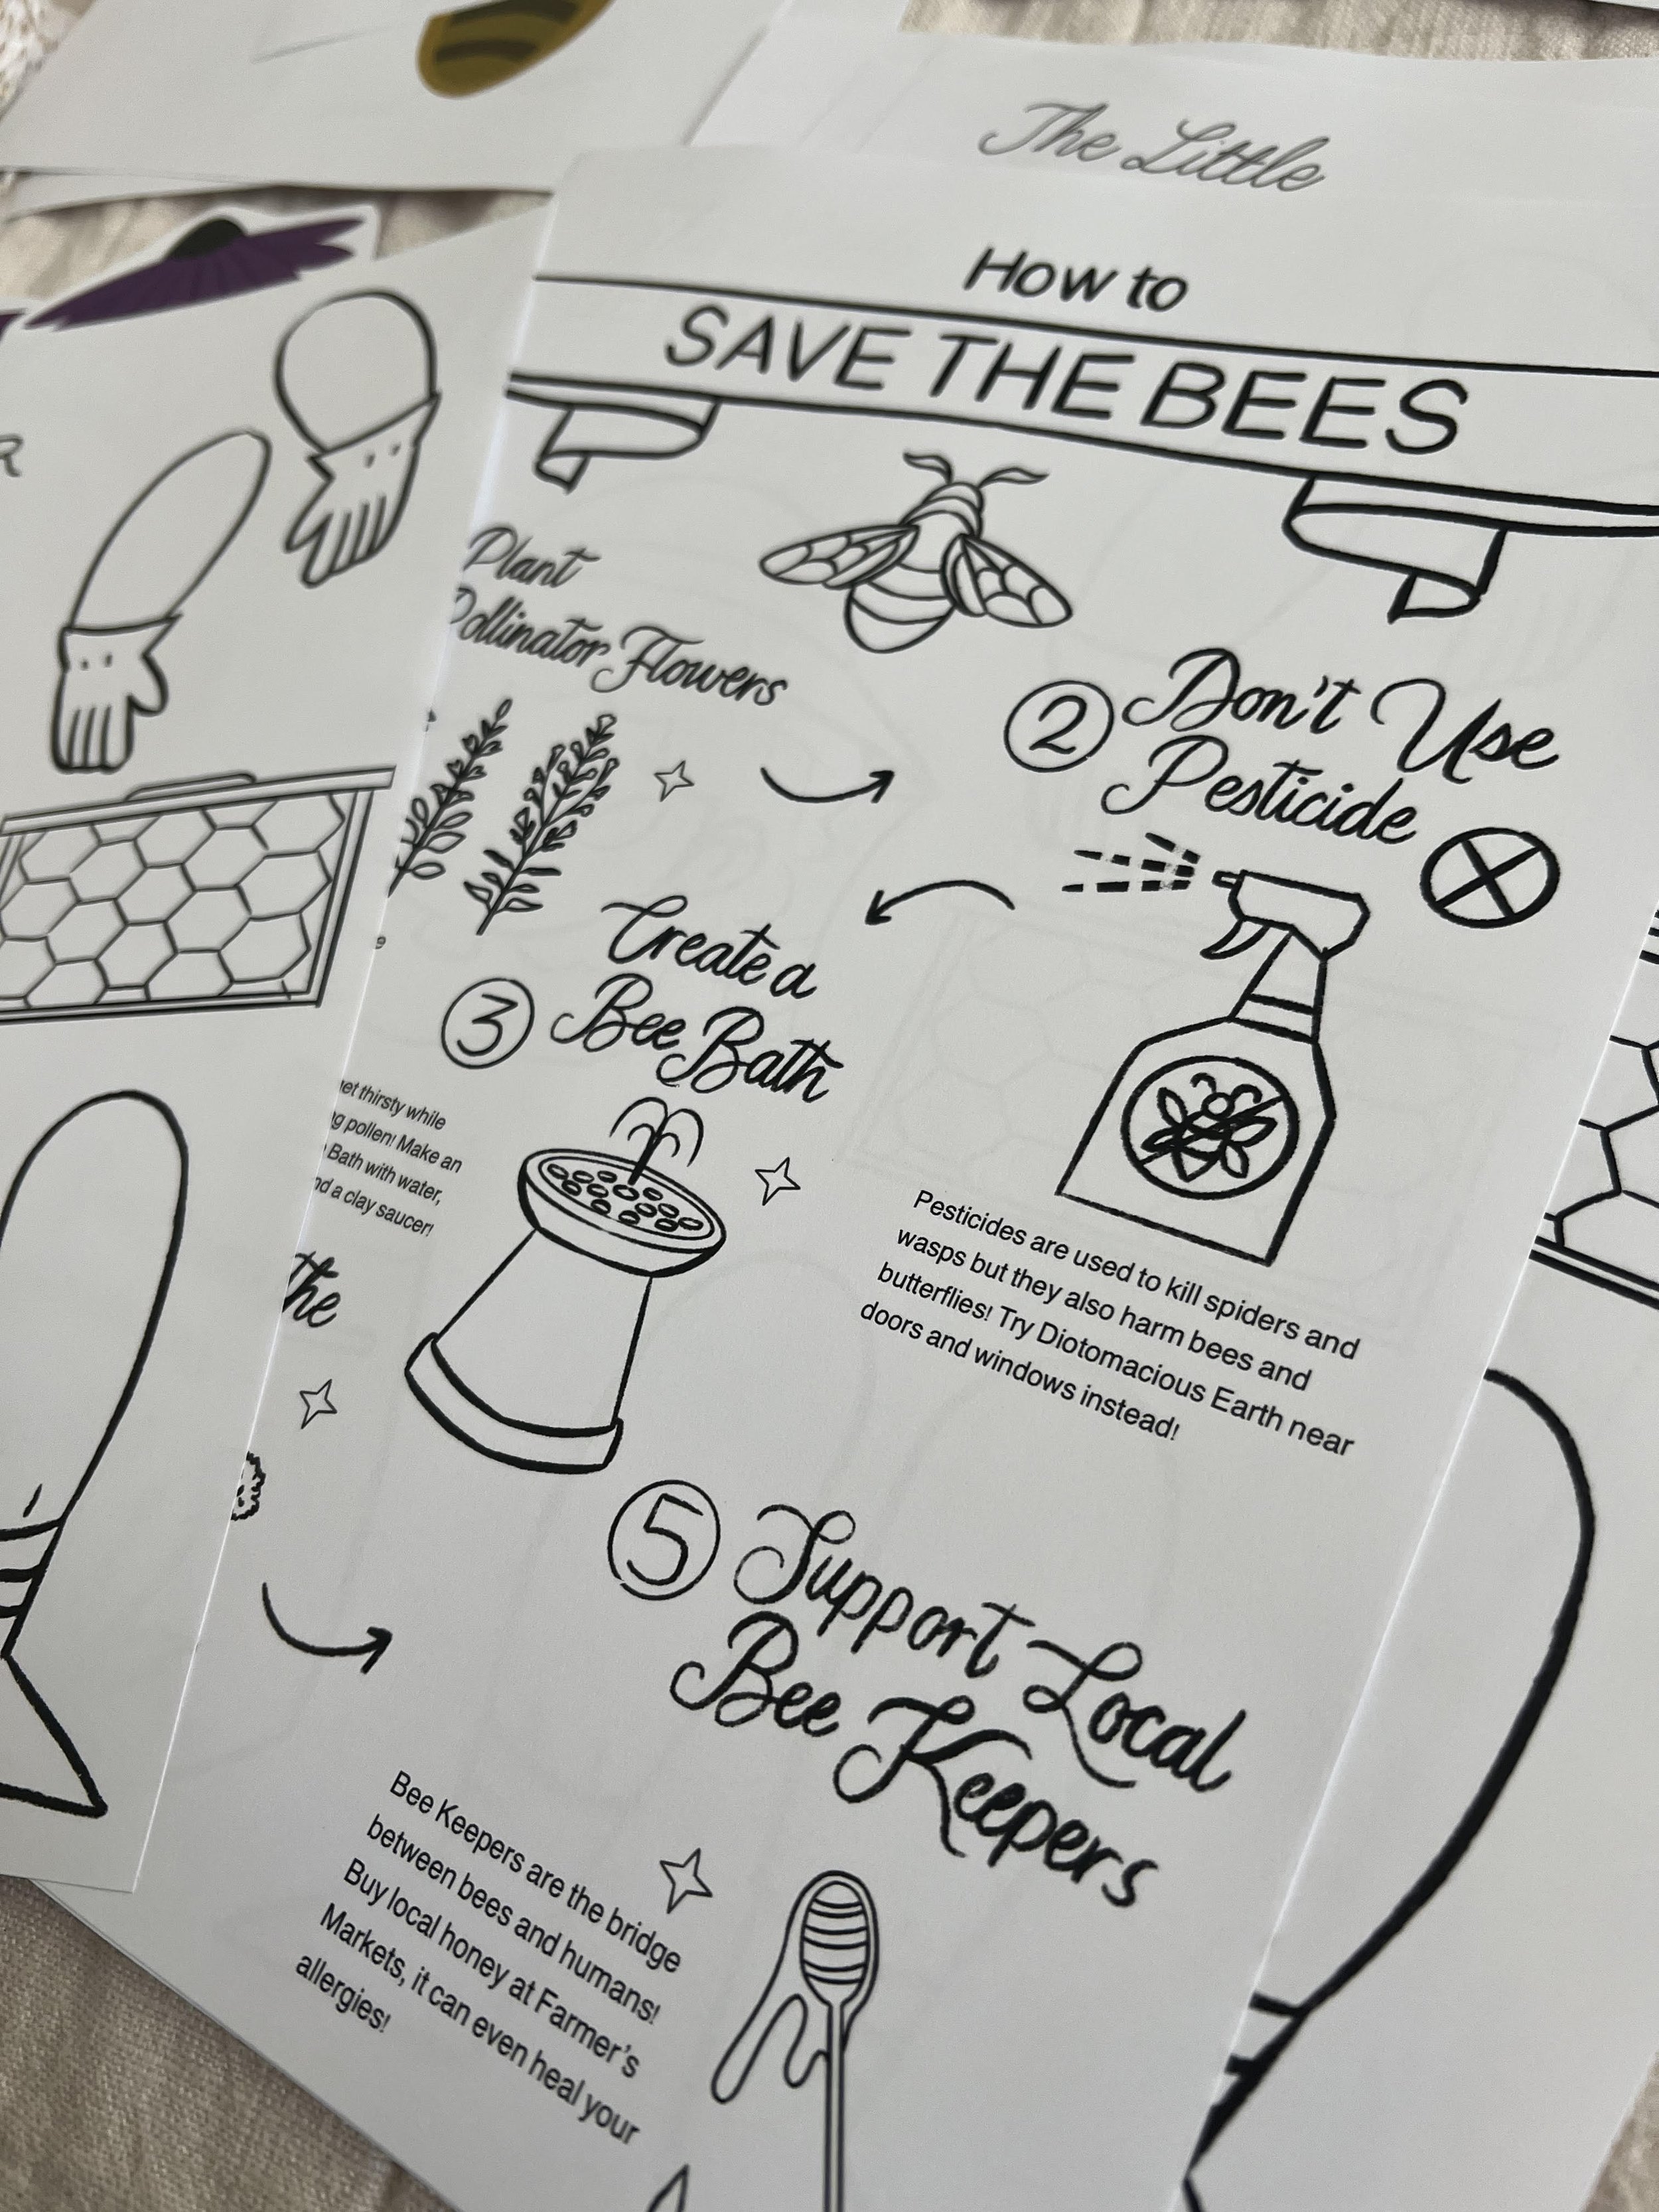 The Little
How to
SAVE THE BEES
Plant
Pollinator Flowers
2 Don't Use
Pesticide
Create a
3 Bee Bath
thirsty while
pollen! Make an
Bath with water,
a clay saucer!
Pesticides are used to kill spiders and
wasps but they also harm bees and
butterflies! Try Diotomacious Earth near
doors and windows instead!
the
5 Support Local
Bee Keepers
Bee Keepers are the bridge
between bees and humans!
Buy local honey at Farmer's
Markets, it can even heal your
allergies!